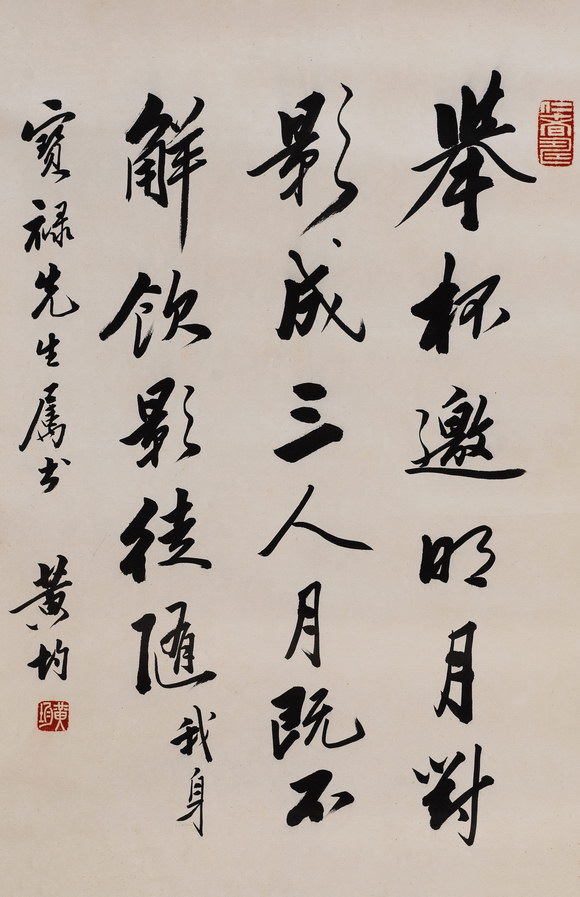 舉杯邀明月對
影成三人月既不
解飲影徒隨
我身
寶祿先生属书
黄均
黄均